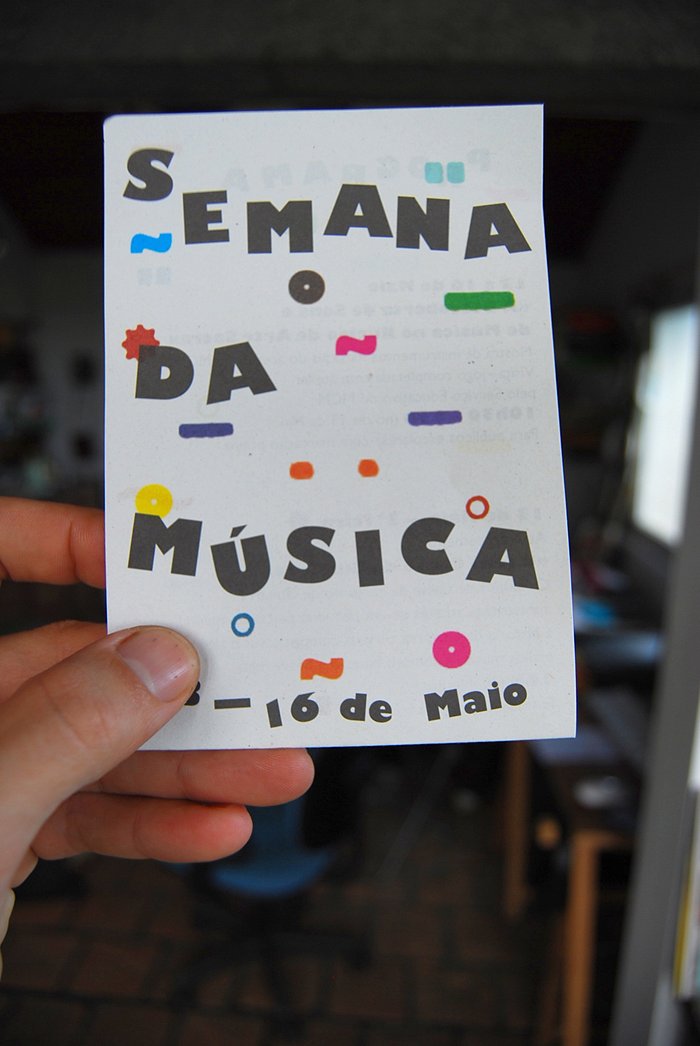 SEMANA
DA
MÚSICA
— 16 de Maio